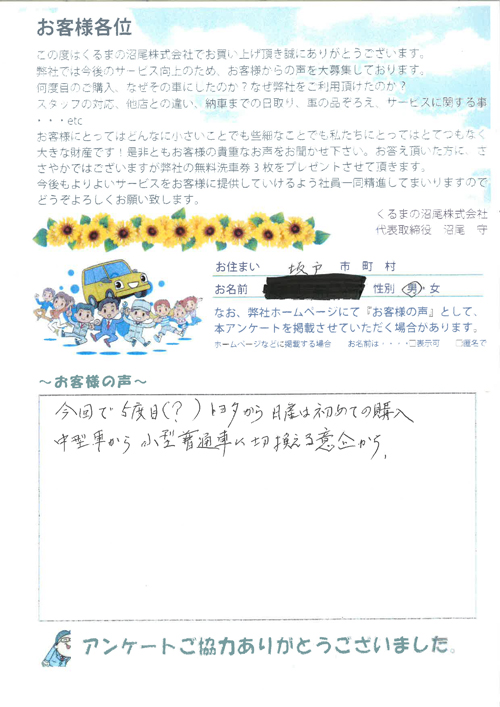 お客様各位
この度はくるまの沼尾株式会社でお買い上げ頂き誠にありがとうございます。
弊社では今後のサービス向上のため、お客様からの声を大募集しております。
何度目のご購入、なぜその車にしたのか？なぜ弊社をご利用頂けたのか？
スタッフの対応、他店との違い、納車までの日取り、車の品ぞろえ、サービスに関する事
・・・etc
お客様にとってはどんなに小さいことでも些細なことでも私たちにとってはとてつもなく
大きな財産です！是非ともお客様の貴重なお声をお聞かせ下さい。お答え頂いた方に、さ
さやかではございますが弊社の無料洗車券３枚をプレゼントさせて頂きます。
今後もよりよいサービスをお客様に提供していけるよう社員一同精進してまいりますので
どうぞよろしくお願い致します。
くるまの沼尾株式会社
代表取締役　沼尾　守
お住まい　坂戸　市　町　村
お名前　性別　男・女
なお、弊社ホームページにて『お客様の声』として、
本アンケートを掲載させていただく場合があります。
ホームページなどに掲載する場合　お名前は・・・・□表示可　□匿名で
～お客様の声～
今回で5度目(？)トヨタから日産は初めての購入
中型車から小型普通車に切換える意企から。
アンケートご協力ありがとうございました。